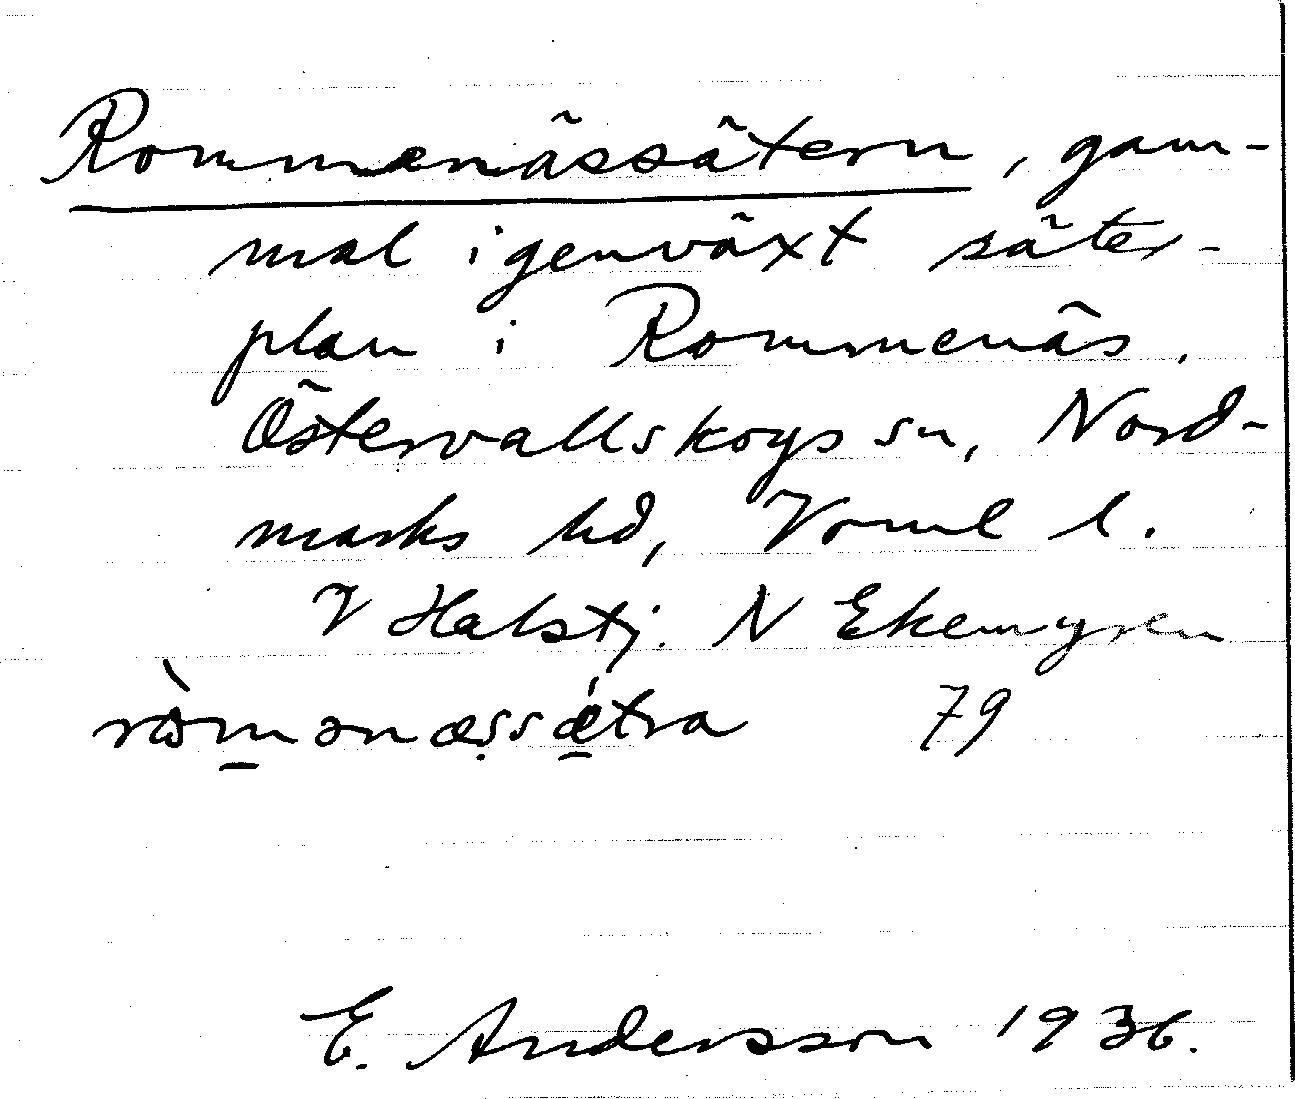 Rommenässätern, gam-
mal igenväxt säter-
plan i Rommenäs.
Östervallskogs sn, Nord-
marks hd, Vrml l.
V Halstj. N Ekemyren
79
E. Andersson 1936.